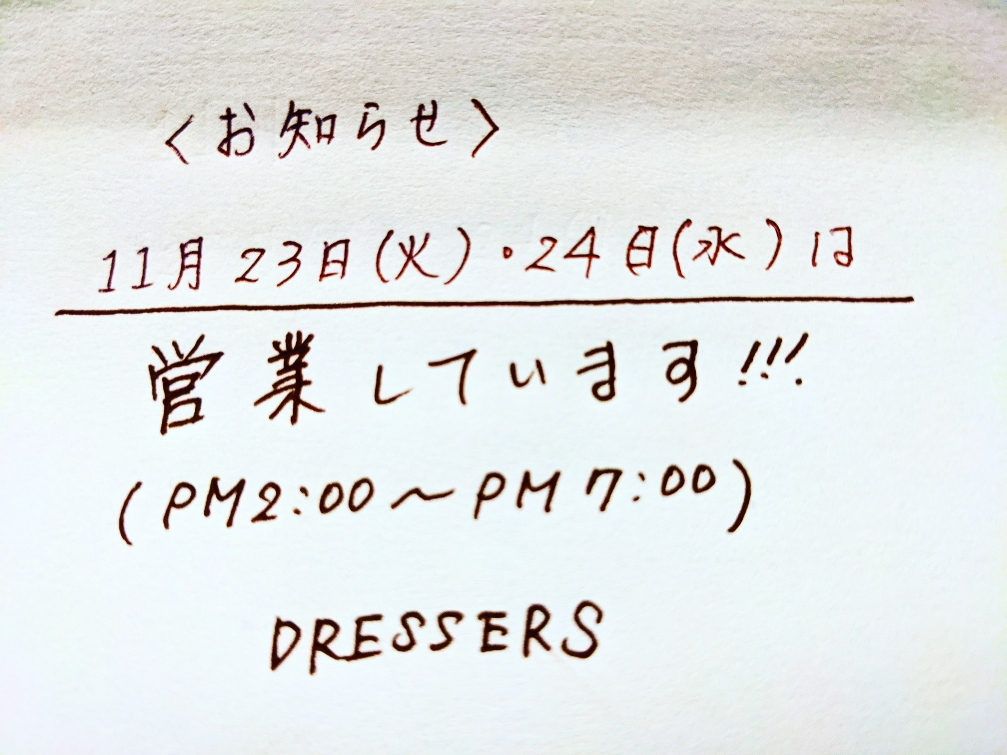 〈お知らせ〉
11月23日(火)・24日(水)は
営業しています!!!
(PM2:00～PM7:00)
DRESSERS